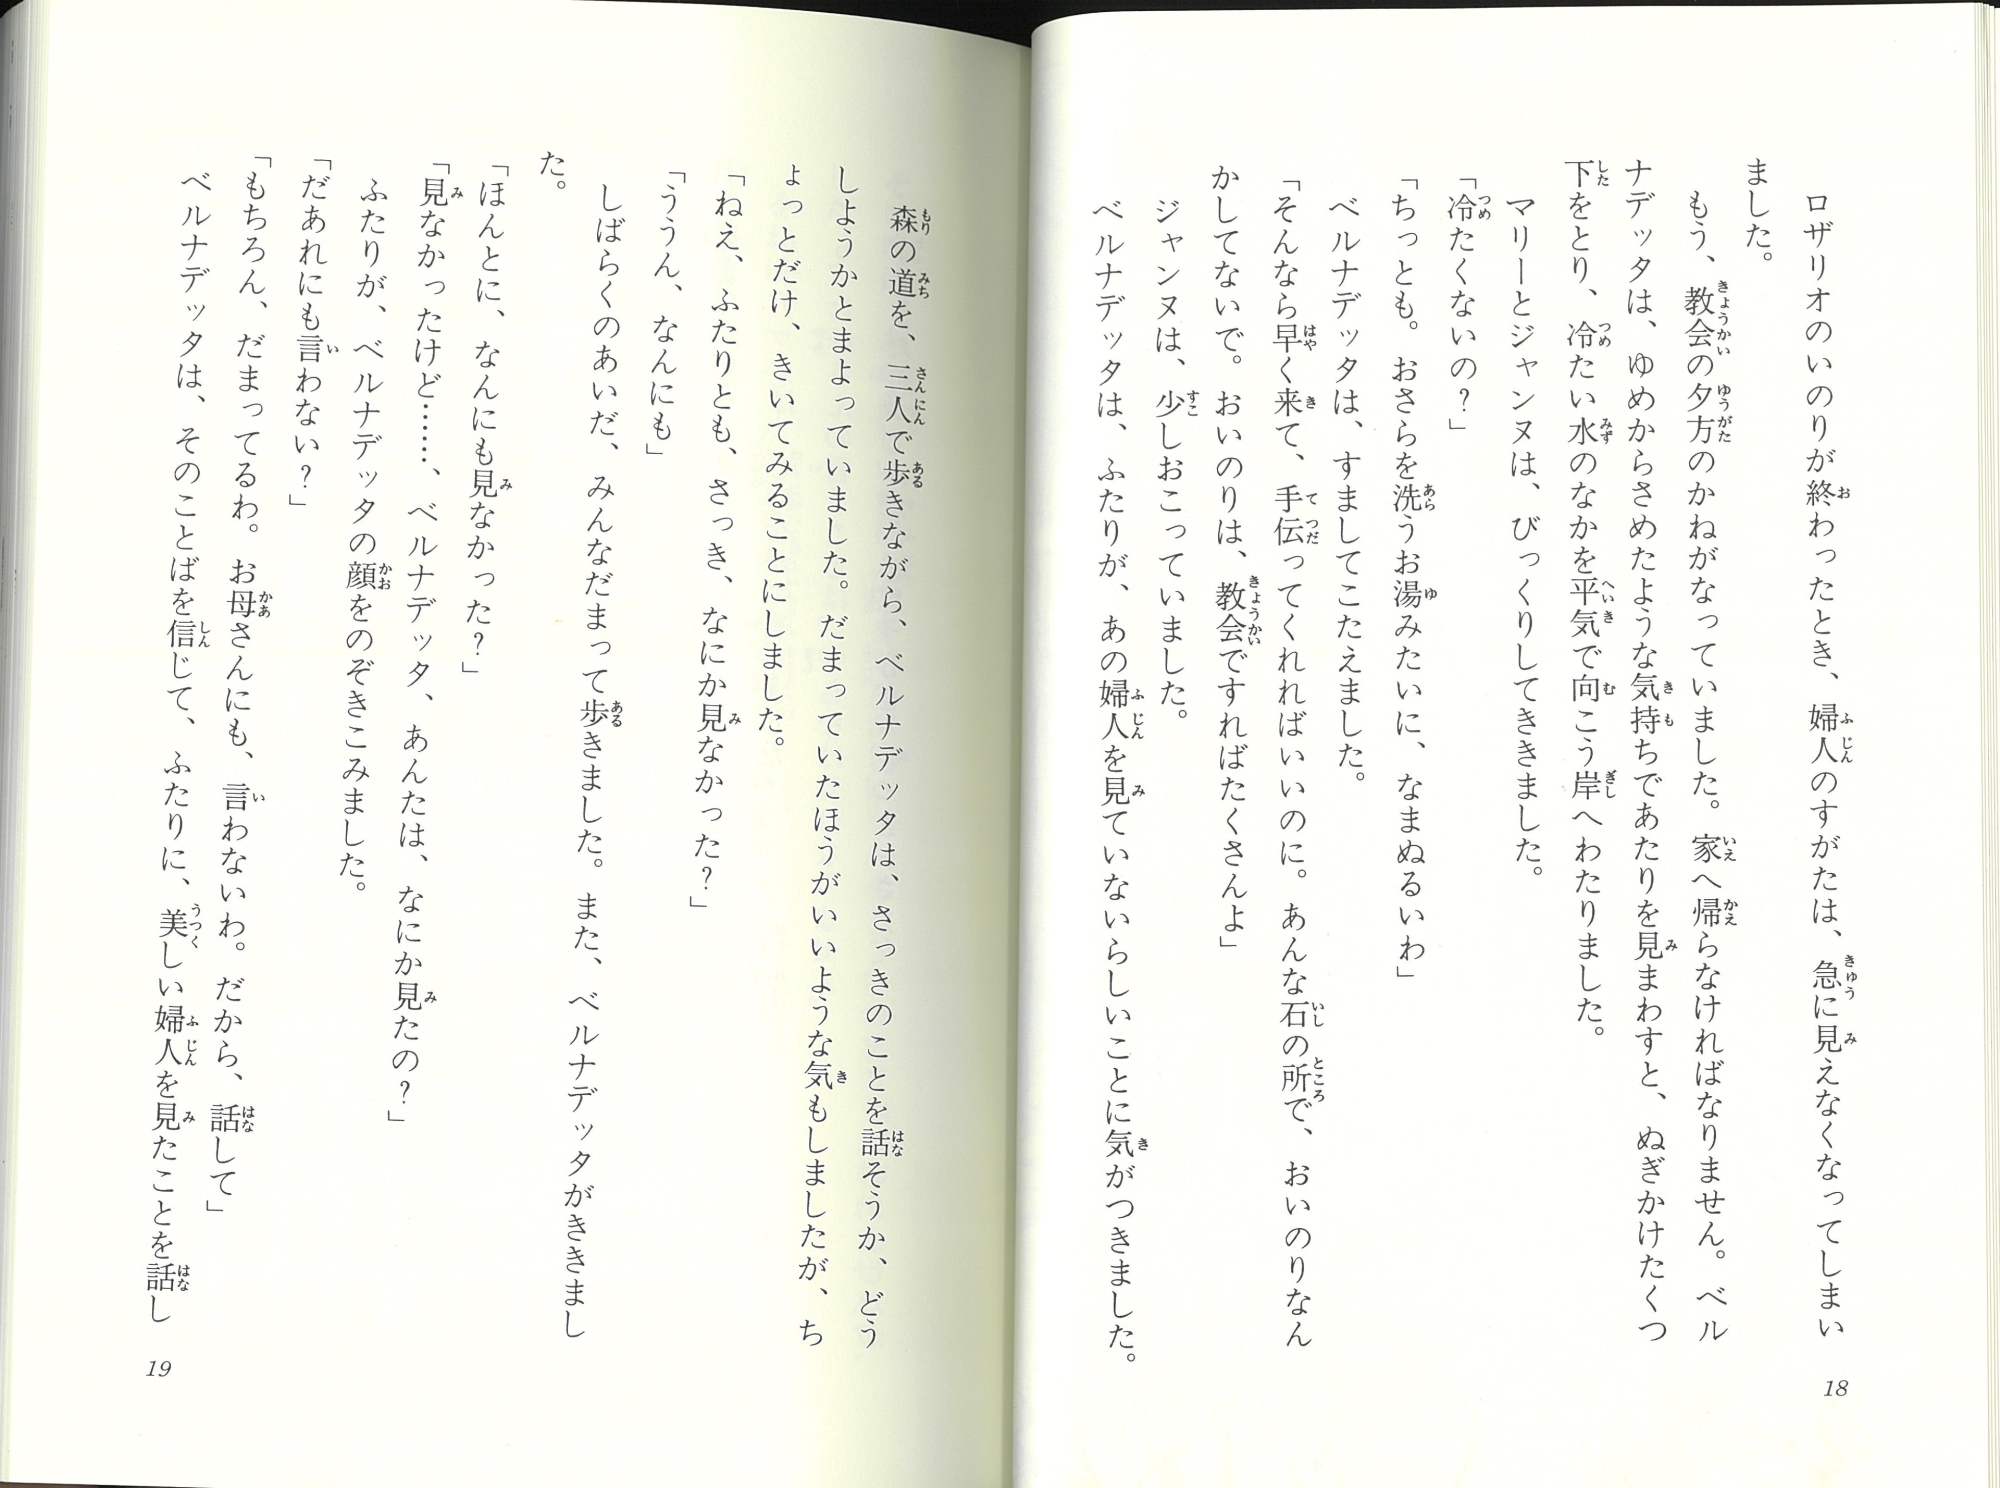 ロザリオのいのりが終わったとき、婦人のすがたは、急に見えなくなってしまい
ました。
もう、教会の夕方のかねがなっていました。家へ帰らなければなりません。ベル
ナデッタは、ゆめからさめたような気持ちであたりを見まわすと、ぬぎかけたくつ
下をとり、冷たい水のなかを平気で向こう岸へわたりました。
マリーとジャンヌは、びっくりしてききました。
「冷たくないの？」
「ちっとも。おさらを洗うお湯みたいに、なまぬるいわ」
ベルナデッタは、すましてこたえました。
「そんなら早く来て、手伝ってくれればいいのに。あんな石の所で、おいのりなん
かしてないで。おいのりは、教会ですればたくさんよ」
ジャンヌは、少しおこっていました。
ベルナデッタは、ふたりが、あの婦人を見ていないらしいことに気がつきました。
18
森の道を、三人で歩きながら、ベルナデッタは、さっきのことを話そうか、どう
しようかとまよっていました。だまっていたほうがいいような気もしましたが、ち
ょっとだけ、きいてみることにしました。
「ねえ、ふたりとも、さっき、なにか見なかった？」
「ううん、なんにも」
しばらくのあいだ、みんなだまって歩きました。また、ベルナデッタがききまし
た。
「ほんとに、なんにも見なかった？」
「見なかったけど……、ベルナデッタ、あんたは、なにか見たの？」
ふたりが、ベルナデッタの顔をのぞきこみました。
「だあれにも言わない？」
「もちろん、だまってるわ。お母さんにも、言わないわ。だから、話して」
ベルナデッタは、そのことばを信じて、ふたりに、美しい婦人を見たことを話し
19